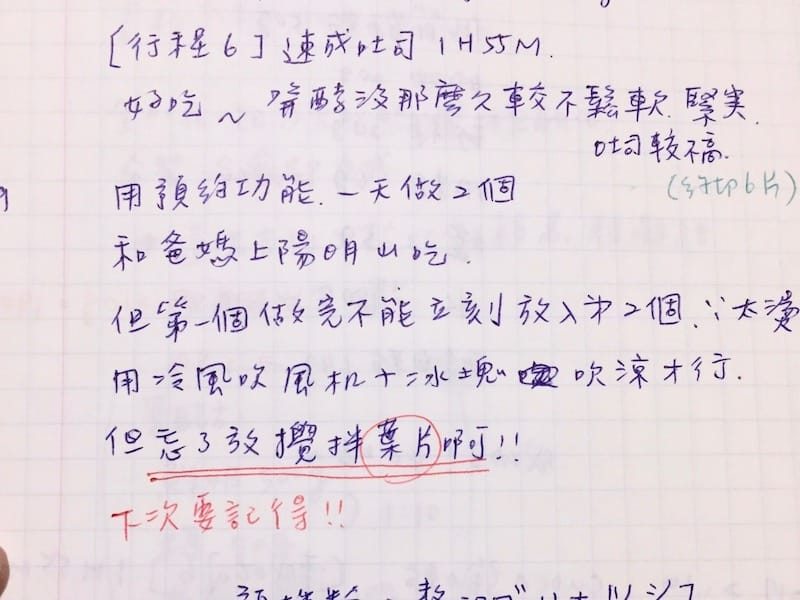 [行程6] 速成吐司 1H55M.
好吃~ 發酵沒那麼久較不鬆軟.緊实.
吐司較不高.
用預約功能.一天做2個
(約切6片)
和爸媽上陽明山吃.
但第一個做完不能立刻放入第2個.∵太燙
用冷風吹風机+冰塊 吹涼才行.
但忘了放攪拌葉片啊!!
下次要記得!!